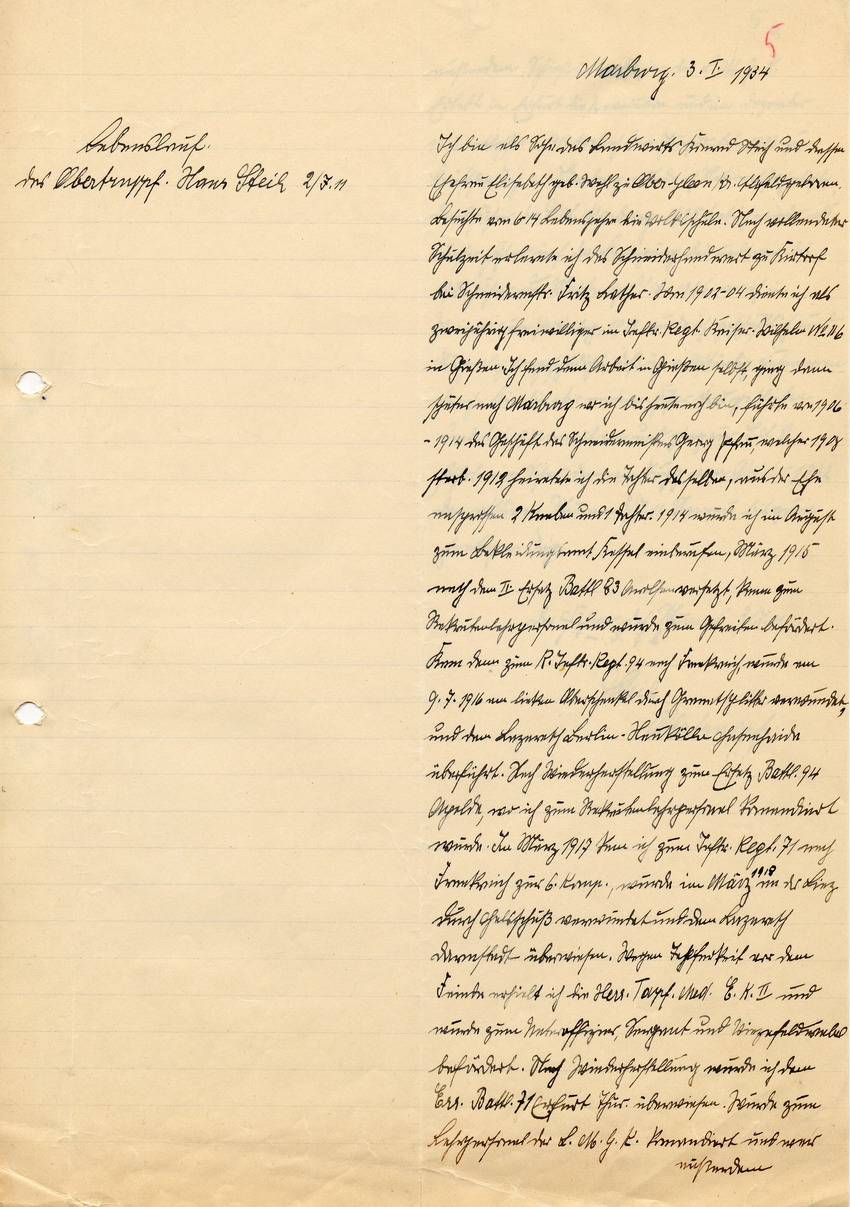 5
Marburg. 3. I. 1934
Lebenslauf.
des Obertruppf. Hans Steih 2/J. 11
Ich bin als Sohn des Landwirts Konrad Steih und dessen
Ehefrau Elisabeth geb. zu Ober-Gleen Kr. Alsfeld geboren,
besuchte vom 6-14 Lebensjahre die Volksschule. Nach vollendeter
Schulzeit erlernte ich das Schneiderhandwerk zu Kirtorf
bei Schneidermstr. Fritz Rather. Von 1902-04 diente ich als
zweijährig freiwilliger im Inftr. Regt. Kaiser-Wilhelm No. 116
in Gießen. Ich fand dann Arbeit in Gießen selbst, ging dann
später nach Marburg wo ich bis heute noch bin, führte von 1906
-1914 das Geschäft des Schneidermeisters Georg Pfau, welcher 1908
starb. 1912 heiratete ich die Tochter desselben, aus der Ehe
entsprossen 2 Knaben und 1 Tochter. 1914 wurde ich im August
zum Bekleidungsamt Kassel einberufen, März 1915
nach dem II Ersatz Battl 83 Arolsen versetzt, kam zum
Rekrutenlehrpersonal und wurde zum Gefreiten befördert.
Kam dann zum R. Inftr. Regt. 94 nach Frankreich, wurde am
9. 7. 1916 am linken Oberschenkel durch Granatsplitter verwundet,
und dem Lazareth Berlin-Neukölln Hasenhaide
überführt. Nach Wiederherstellung zum Ersatz Battl. 94
Apolda, wo ich zum Rekrutenlehrpersonal komandiert
wurde. Im März 1917 kam ich zum Inftr. Regt. 71 nach
Frankreich zur 6. Komp., wurde im März 1918 an der
durch Halsschuß verwundet und dem Lazareth
Darmstadt überwiesen. Wegen Tapferkeit vor dem
Feinde erhielt ich die Hess. Tapf. Med. E. K. II und
wurde zum Unteroffizier, Sergant und Vizefeldwebel
befördert. Nach Wiederherstellung wurde ich dem
Ers. Battl. 71 Erfurt Thür. überwiesen. Wurde zum
Lehrpersonal der L. M. G. K. komandiert und war
außerdem